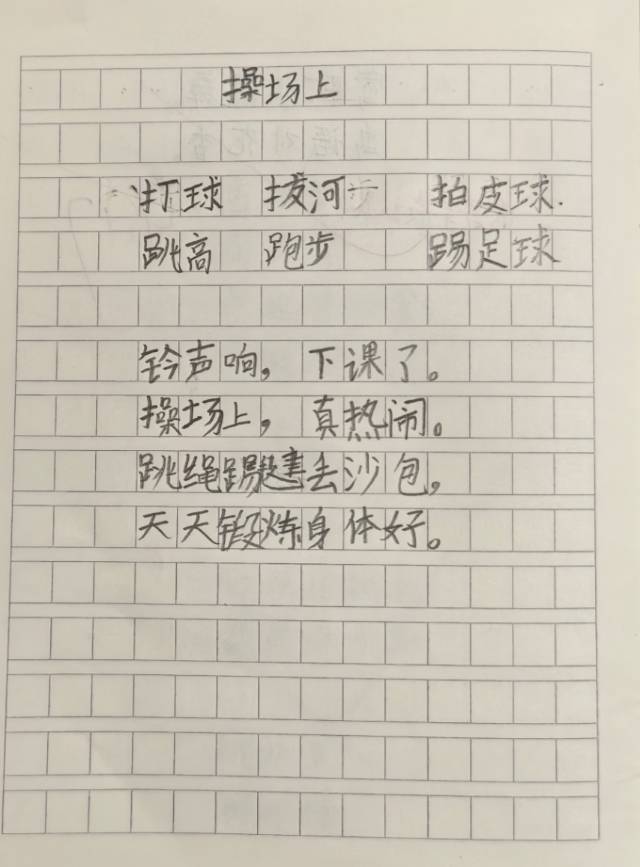 操场上
打球 拔河 拍皮球.
跳高 跑步 踢足球
铃声响，下课了。
操场上，真热闹。
跳绳踢毽丢沙包，
天天锻炼身体好。